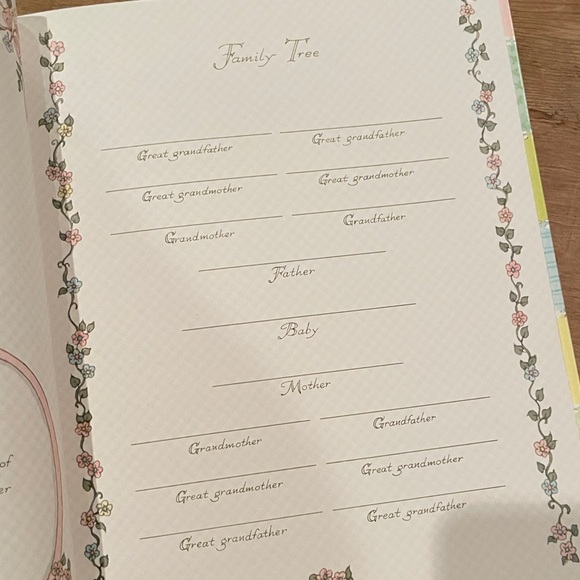 Family Tree
Great grandfather Great grandfather
Great grandmother Great grandmother
Grandmother Grandfather
Father
Baby
Mother
Grandmother Grandfather
Great grandmother Great grandmother
Great grandfather Great grandfather
of